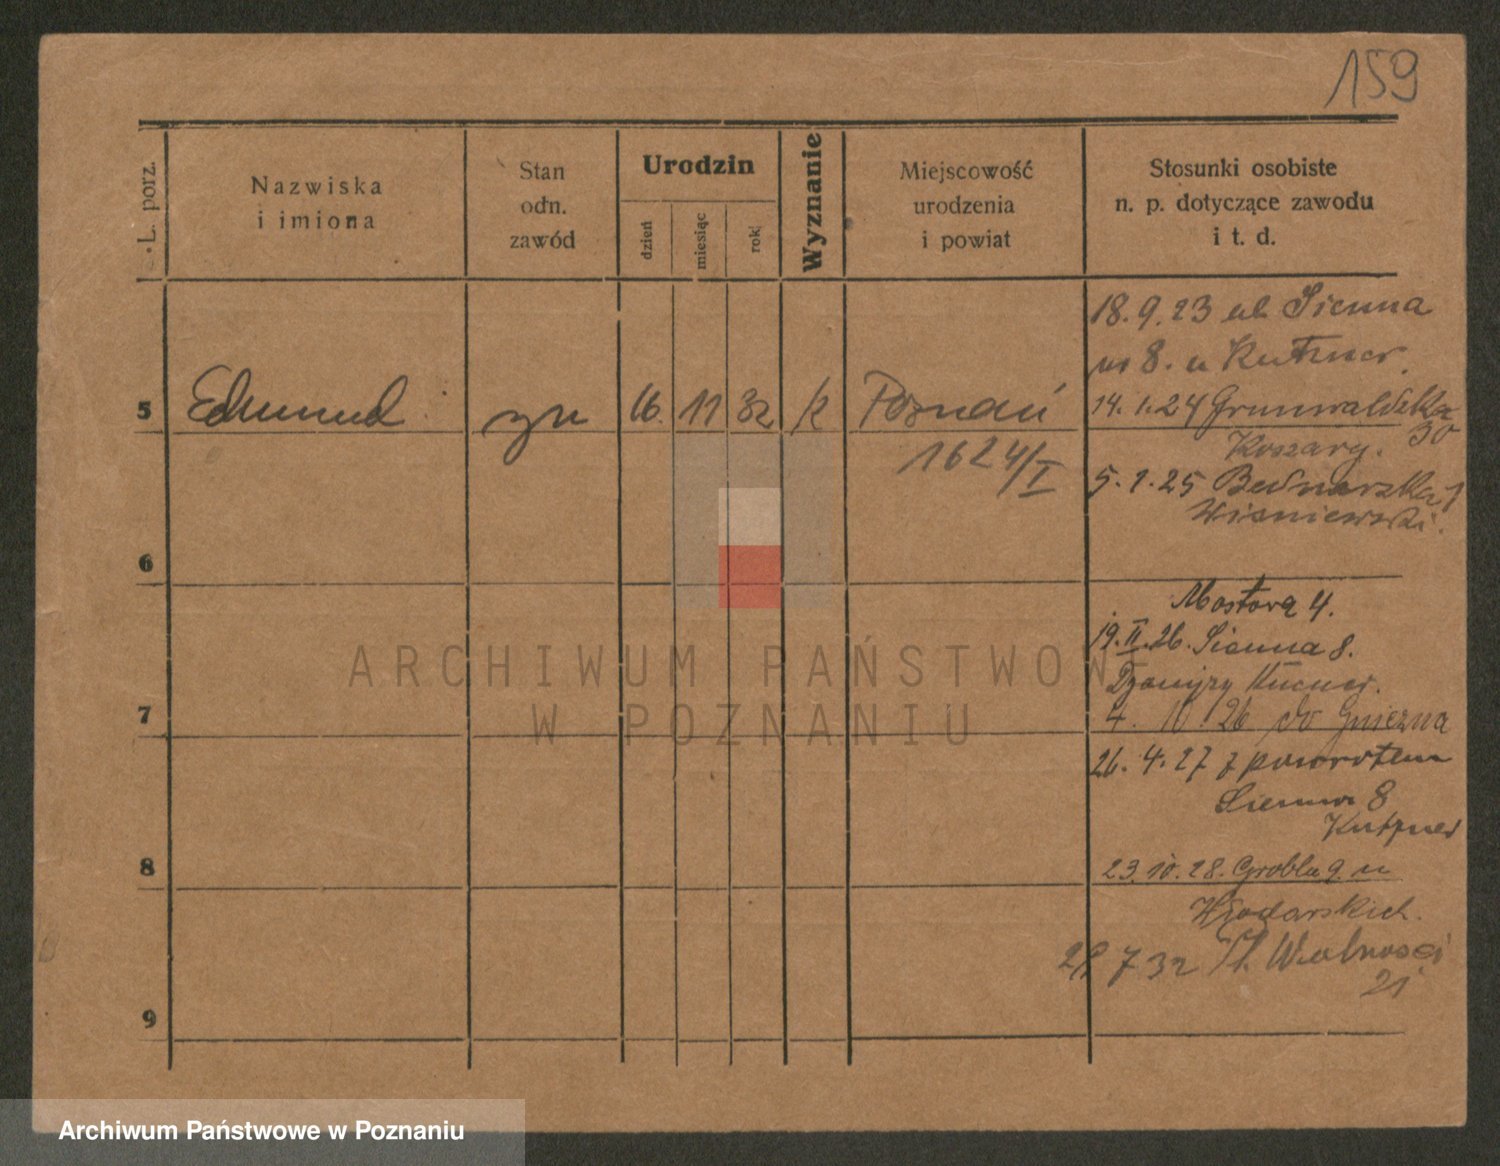 159
L. porz.
Nazwiska
i imiona
Stan
odn.
zawód
Urodzin
dzień
miesiąc
rok
Wyznanie
Miejscowość
urodzenia
i powiat
Stosunki osobiste
n. p. dotyczące zawodu
i t. d.
5
Edmund
zn
16. 11 32
k
Poznań
1624/I
18.9.23 ul. Sienna
nr 8. u Kutzner.
14.1.24 Grunwaldzka
30
Koszary.
5.1.25 Bednarzka 1
Wisniewski.
6
Mostova 4.
19.II.26. Sienna 8.
7
4. 10. 26 do Gniezna
26.4.27 z powrotem
Sienna 8
Kutzner
8
23.10.28. Grobla 9. u
Włodarskich.
7 32 Pl. Wolnosci
21
9
ARCHIWUM PAŃSTWOWE
W POZNANIU
Archiwum Państwowe w Poznaniu